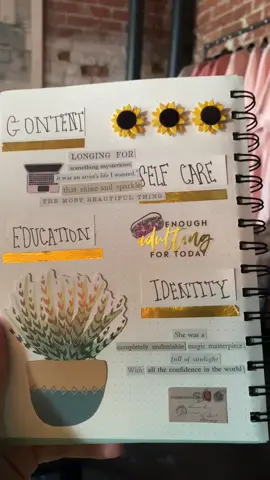 CONTENT
LONGING FOR
something mysterious.
it was an artist's life I wanted."
that shine and sparkle
THE MOST BEAUTIFUL THING
SELF CARE
EDUCATION
ENOUGH
adulting
FOR TODAY
IDENTITY
She was a
completely undeniable magic masterpiece
full of sunlight
With all the confidence in the world